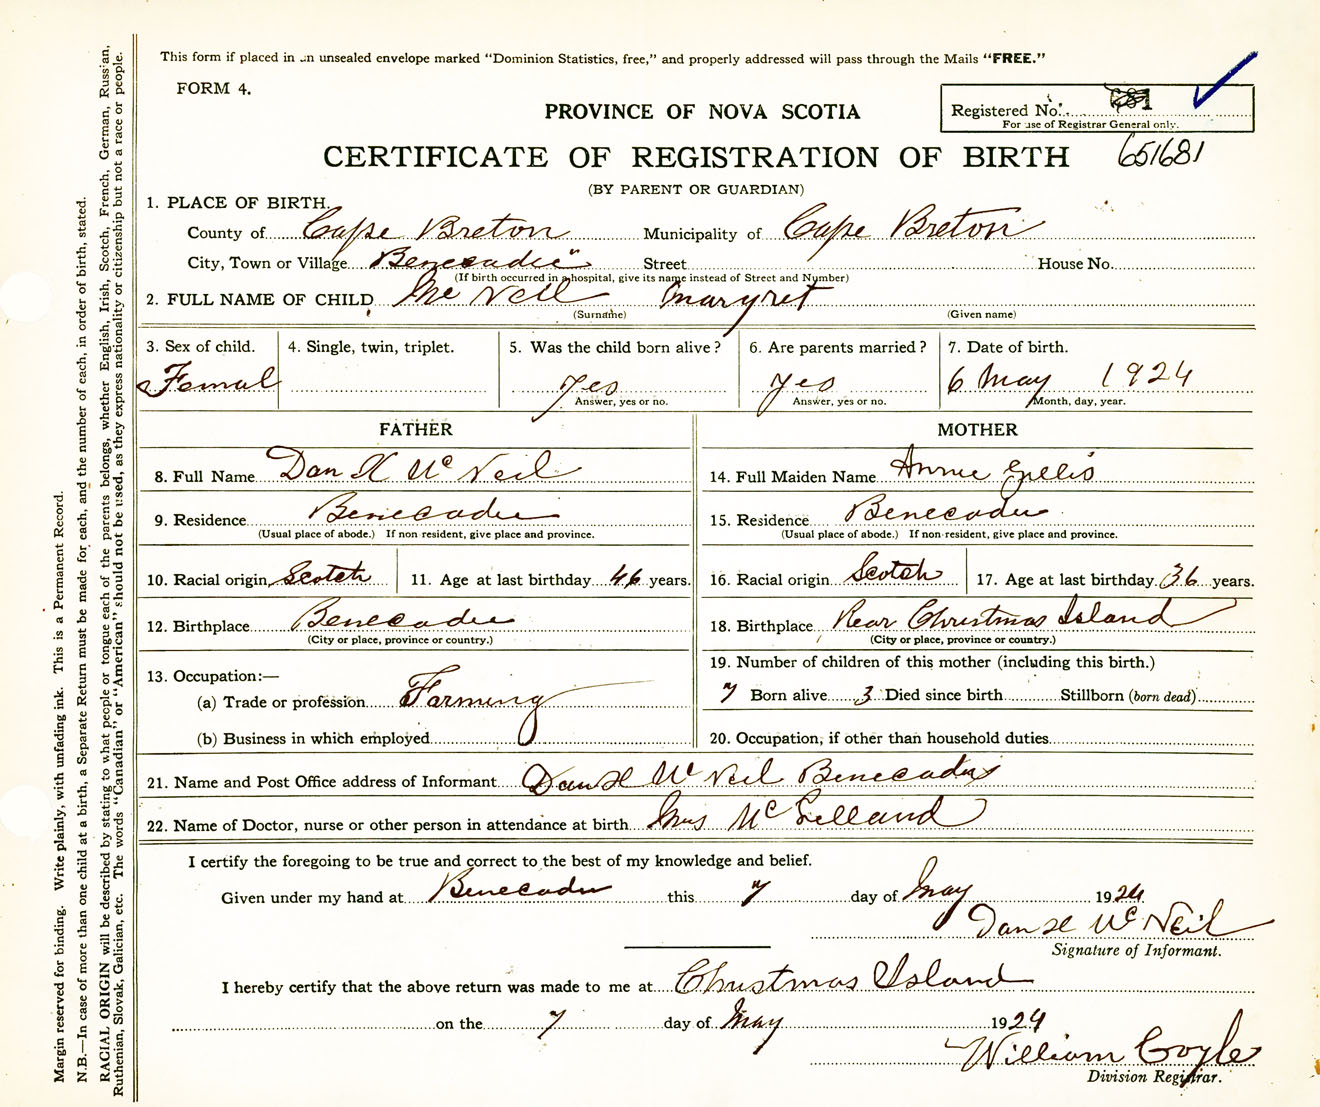 This form if placed in an unsealed envelope marked "Dominion Statistics, free," and properly addressed will pass through the Mails "FREE."
FORM 4.
PROVINCE OF NOVA SCOTIA
Registered No.
For use of Registrar General only.
CERTIFICATE OF REGISTRATION OF BIRTH 651681
(BY PARENT OR GUARDIAN)
1. PLACE OF BIRTH.
County of Cape Breton Municipality of Cape Breton
City, Town or Village Benecadie Street House No.
(If birth occurred in a hospital, give its name instead of Street and Number)
2. FULL NAME OF CHILD Mc Neil Margret
(Surname) (Given name)
3. Sex of child. 4. Single, twin, triplet. 5. Was the child born alive? 6. Are parents married? 7. Date of birth.
Femal yes yes 6 May 1924
Answer, yes or no. Answer, yes or no. Month, day, year.
FATHER MOTHER
8. Full Name Dan H McNeil 14. Full Maiden Name Annie Gillis
9. Residence Benecadie 15. Residence Benecadie
(Usual place of abode.) If non resident, give place and province. (Usual place of abode.) If non-resident, give place and province.
10. Racial origin Scotch 11. Age at last birthday 46 years. 16. Racial origin Scotch 17. Age at last birthday 36 years.
12. Birthplace Benecadie 18. Birthplace Rear Christmas Island
(City or place, province or country.) (City or place, province or country.)
13. Occupation:— 19. Number of children of this mother (including this birth.)
(a) Trade or profession Farming 7 Born alive 3 Died since birth Stillborn (born dead)
(b) Business in which employed 20. Occupation, if other than household duties
21. Name and Post Office address of Informant Dan H McNeil Benecadie
22. Name of Doctor, nurse or other person in attendance at birth Mrs McLelland
I certify the foregoing to be true and correct to the best of my knowledge and belief.
Given under my hand at Benecadie this 7 day of May 1924
Dan H McNeil
Signature of Informant.
I hereby certify that the above return was made to me at Christmas Island
on the 7 day of May 1924
William Coyle
Division Registrar.
Margin reserved for binding. Write plainly, with unfading ink. This is a Permanent Record.
N.B.—In case of more than one child at a birth, a Separate Return must be made for each, and the number of each, in order of birth, stated.
RACIAL ORIGIN will be described by stating to what people or tongue each of the parents belongs, whether English, Irish, Scotch, French, German, Russian,
Ruthenian, Slovak, Galician, etc. The words "Canadian" or "American" should not be used, as they express nationality or citizenship but not a race or people.